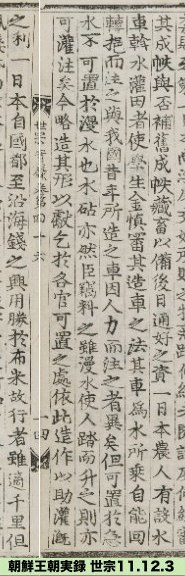 其成帙與否補舊成帙藏畜以備後日通好之資一日本農人有設水
車斡水灌田者使學生金慎審其造車之法其車爲水所乘自能回
轉挹而注之與我國昔年所造之車因人力而注之者異矣但可置於急
水不可置於漫水也水砧亦然臣竊料之雖漫水使人踏而升之則亦
可灌注矣今略造其形以獻乞於各官可置之處依此造作以助灌漑
世宗實錄卷第四十六
十四
之利一日本自國都至沿海錢之興用勝於布米故行者雖適千里但
朝鮮王朝実録 世宗11.12.3